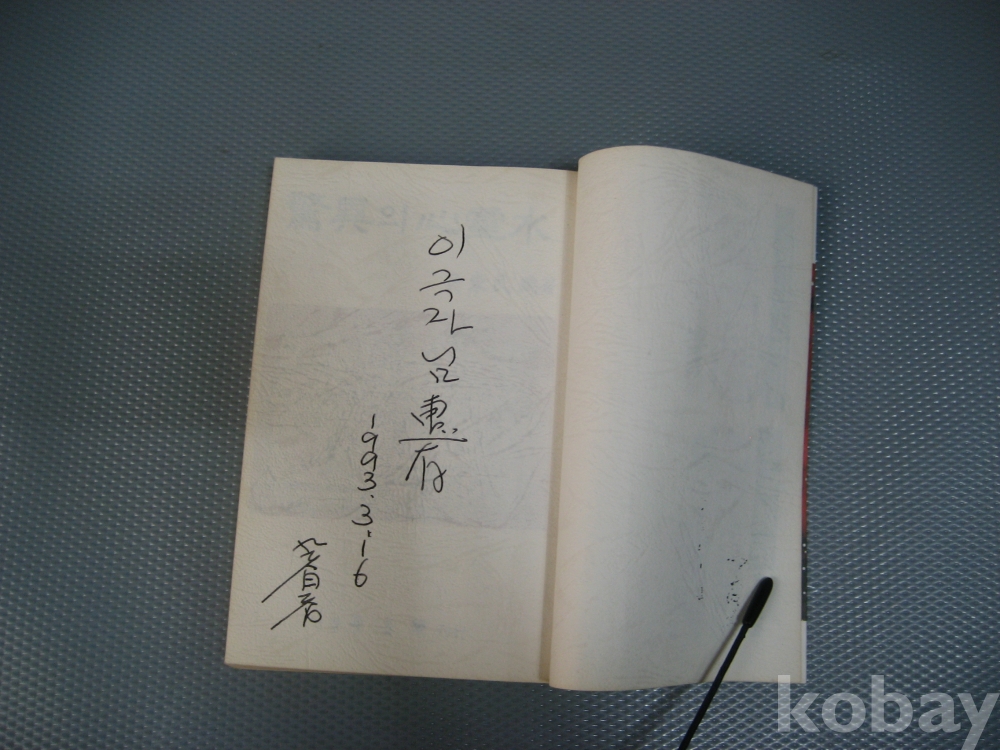 이국자님惠存
1993.3.16
kobay